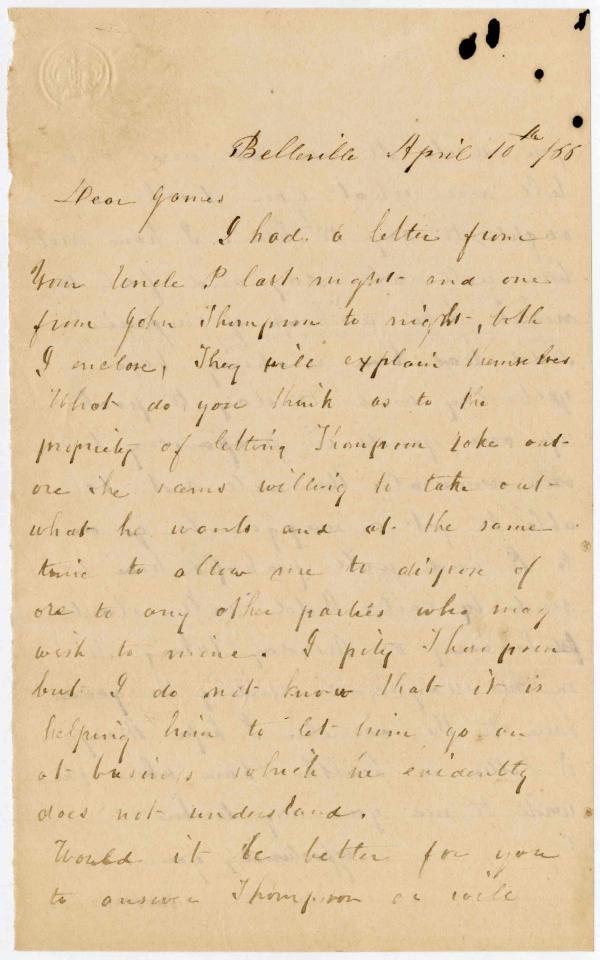 Belleville April 10th /66
Dear James
I had a letter from
Your Uncle P last night and one
from John Thompson to night, both
I enclose, They will explain themselves
What do you think as to the
propriety of letting Thompson take out
ore he seems willing to take out
what he wants and at the same
time to allow me to dispose of
ore to any other parties who may
wish to mine. I pity Thompson
but I do not know that it is
helping him to let him go on
at business which he evidently
does not understand.
Would it be better for you
to answer Thompson or will